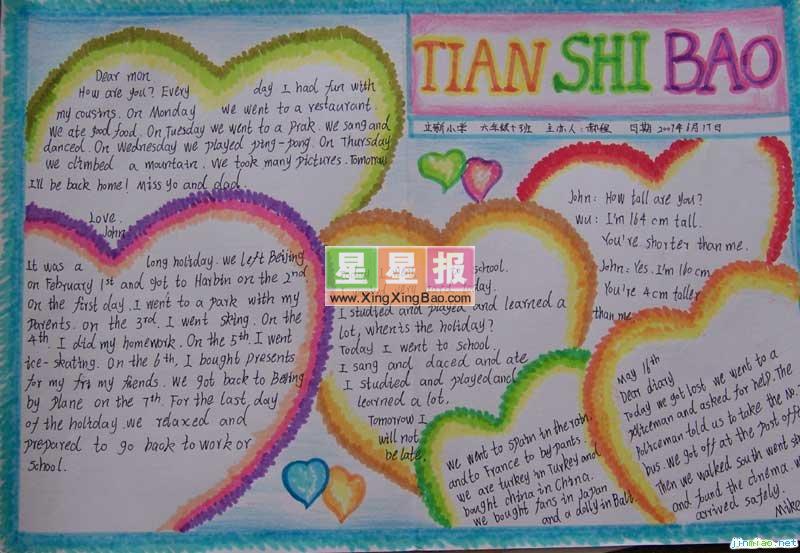 TIAN SHI BAO
六年级十班 主办人: 日期 2009年6月17日
Dear mon
How are you? Every day I had fun with
my cousins. On Monday we went to a restaurant.
We ate good food. On Tuesday we went to a prak. We sang and
danced. On Wednesday we played ping-pong. On Thursday
we climbed a mountain. We took many pictures. Tomorrow
I'll be back home! Miss yo and dad.
Love.
John
It was a long holiday. We left Beijing
on February 1st and got to Harbin on the 2nd
on the first day. I went to a park with my
Parents. on the 3rd. I went sking. On the
4th I did my homework. On the 5th I went
ice-skating. On the 6th, I bought presents
for my fri my friends. We got back to Beijing
by plane on the 7th. For the last, day
of the holiday. we relaxed and
prepared to go back to work or
school.
school.
day.
I studied and played and learned a
lot, when's the holiday?
Today I went to school.
I sang and daced and ate
I studied and played and
learned a lot.
Tomorrow I
will not
be late.
星星报
www.XingXingBao.com
John: How tall are you?
Wu: I'm 164 cm tall.
You're shorter than me.
John: Yes. I'm 160 cm
You're 4cm taller
than me
We went to Spain in the rain.
and to France to buy pants.
We are turkey in Turkey and
bought china in China.
We bought fans in Japan
and a dolly in Bali.
May 16th
Dear diary
Today we got lost. we went to a
policeman and asked for help. The
Policeman told us to take the No.
bus. We got off at the post office
Then we walked south went st
and found the cinema. w
arrived safely.
Mike
jinmiao.net